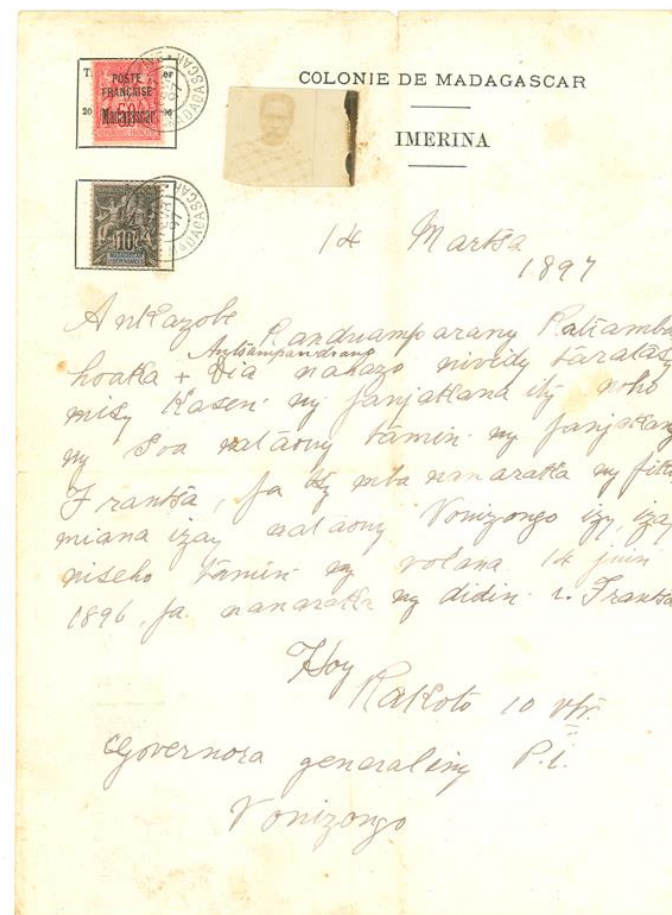 POSTE
FRANÇAISE
Madagascar
10
COLONIE DE MADAGASCAR
IMERINA
14 Martsa
1897
Ankazobe
Antsampandrano
hoatka + Dia nahazo nividy taratasy
misy Kasen. ny fanjakana ity noho
ny soa nataony tamin. ny fanjakana
Frantsa, fa
nanaraka ny
miana izay nataony Vonizongo izy, izay
niseho tamin. ny volana 14 juin
1896, fa nanaraka ny didin. i. Frantsa
Hoy
Rakoto 10 vtr.
Governora generaliny P.i.
Vonizongo